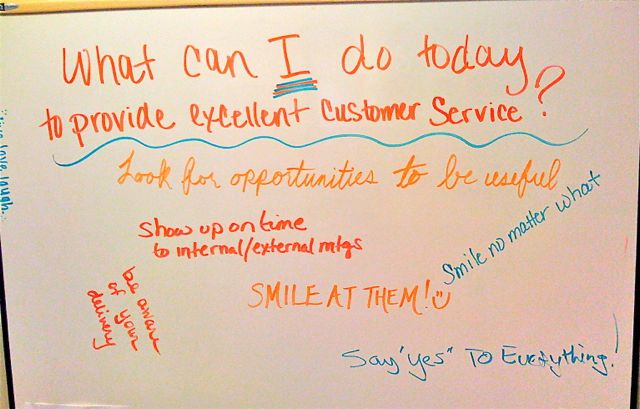 What can I do today
to provide excellent customer Service?
Look for opportunities to be useful
show up on time
to internal/external mtgs
Smile no matter what
SMILE AT THEM!
be aware
of your
delivery
Say "yes" To Everything!
love laugh